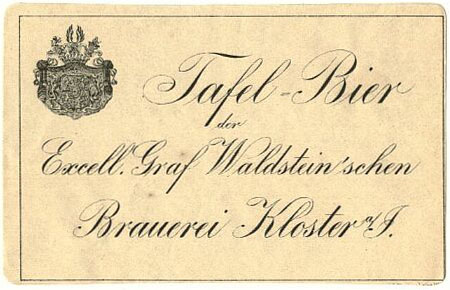 Tafel-Bier
der
Excell. Graf Waldstein'schen
Brauerei Kloster a/I.